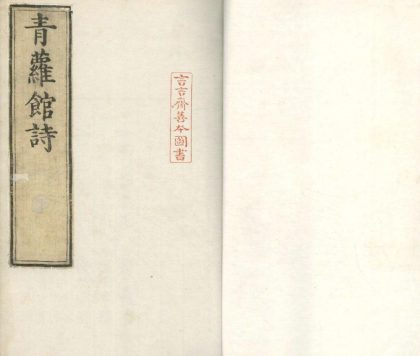 青蘿館詩
言言齋善本圖書